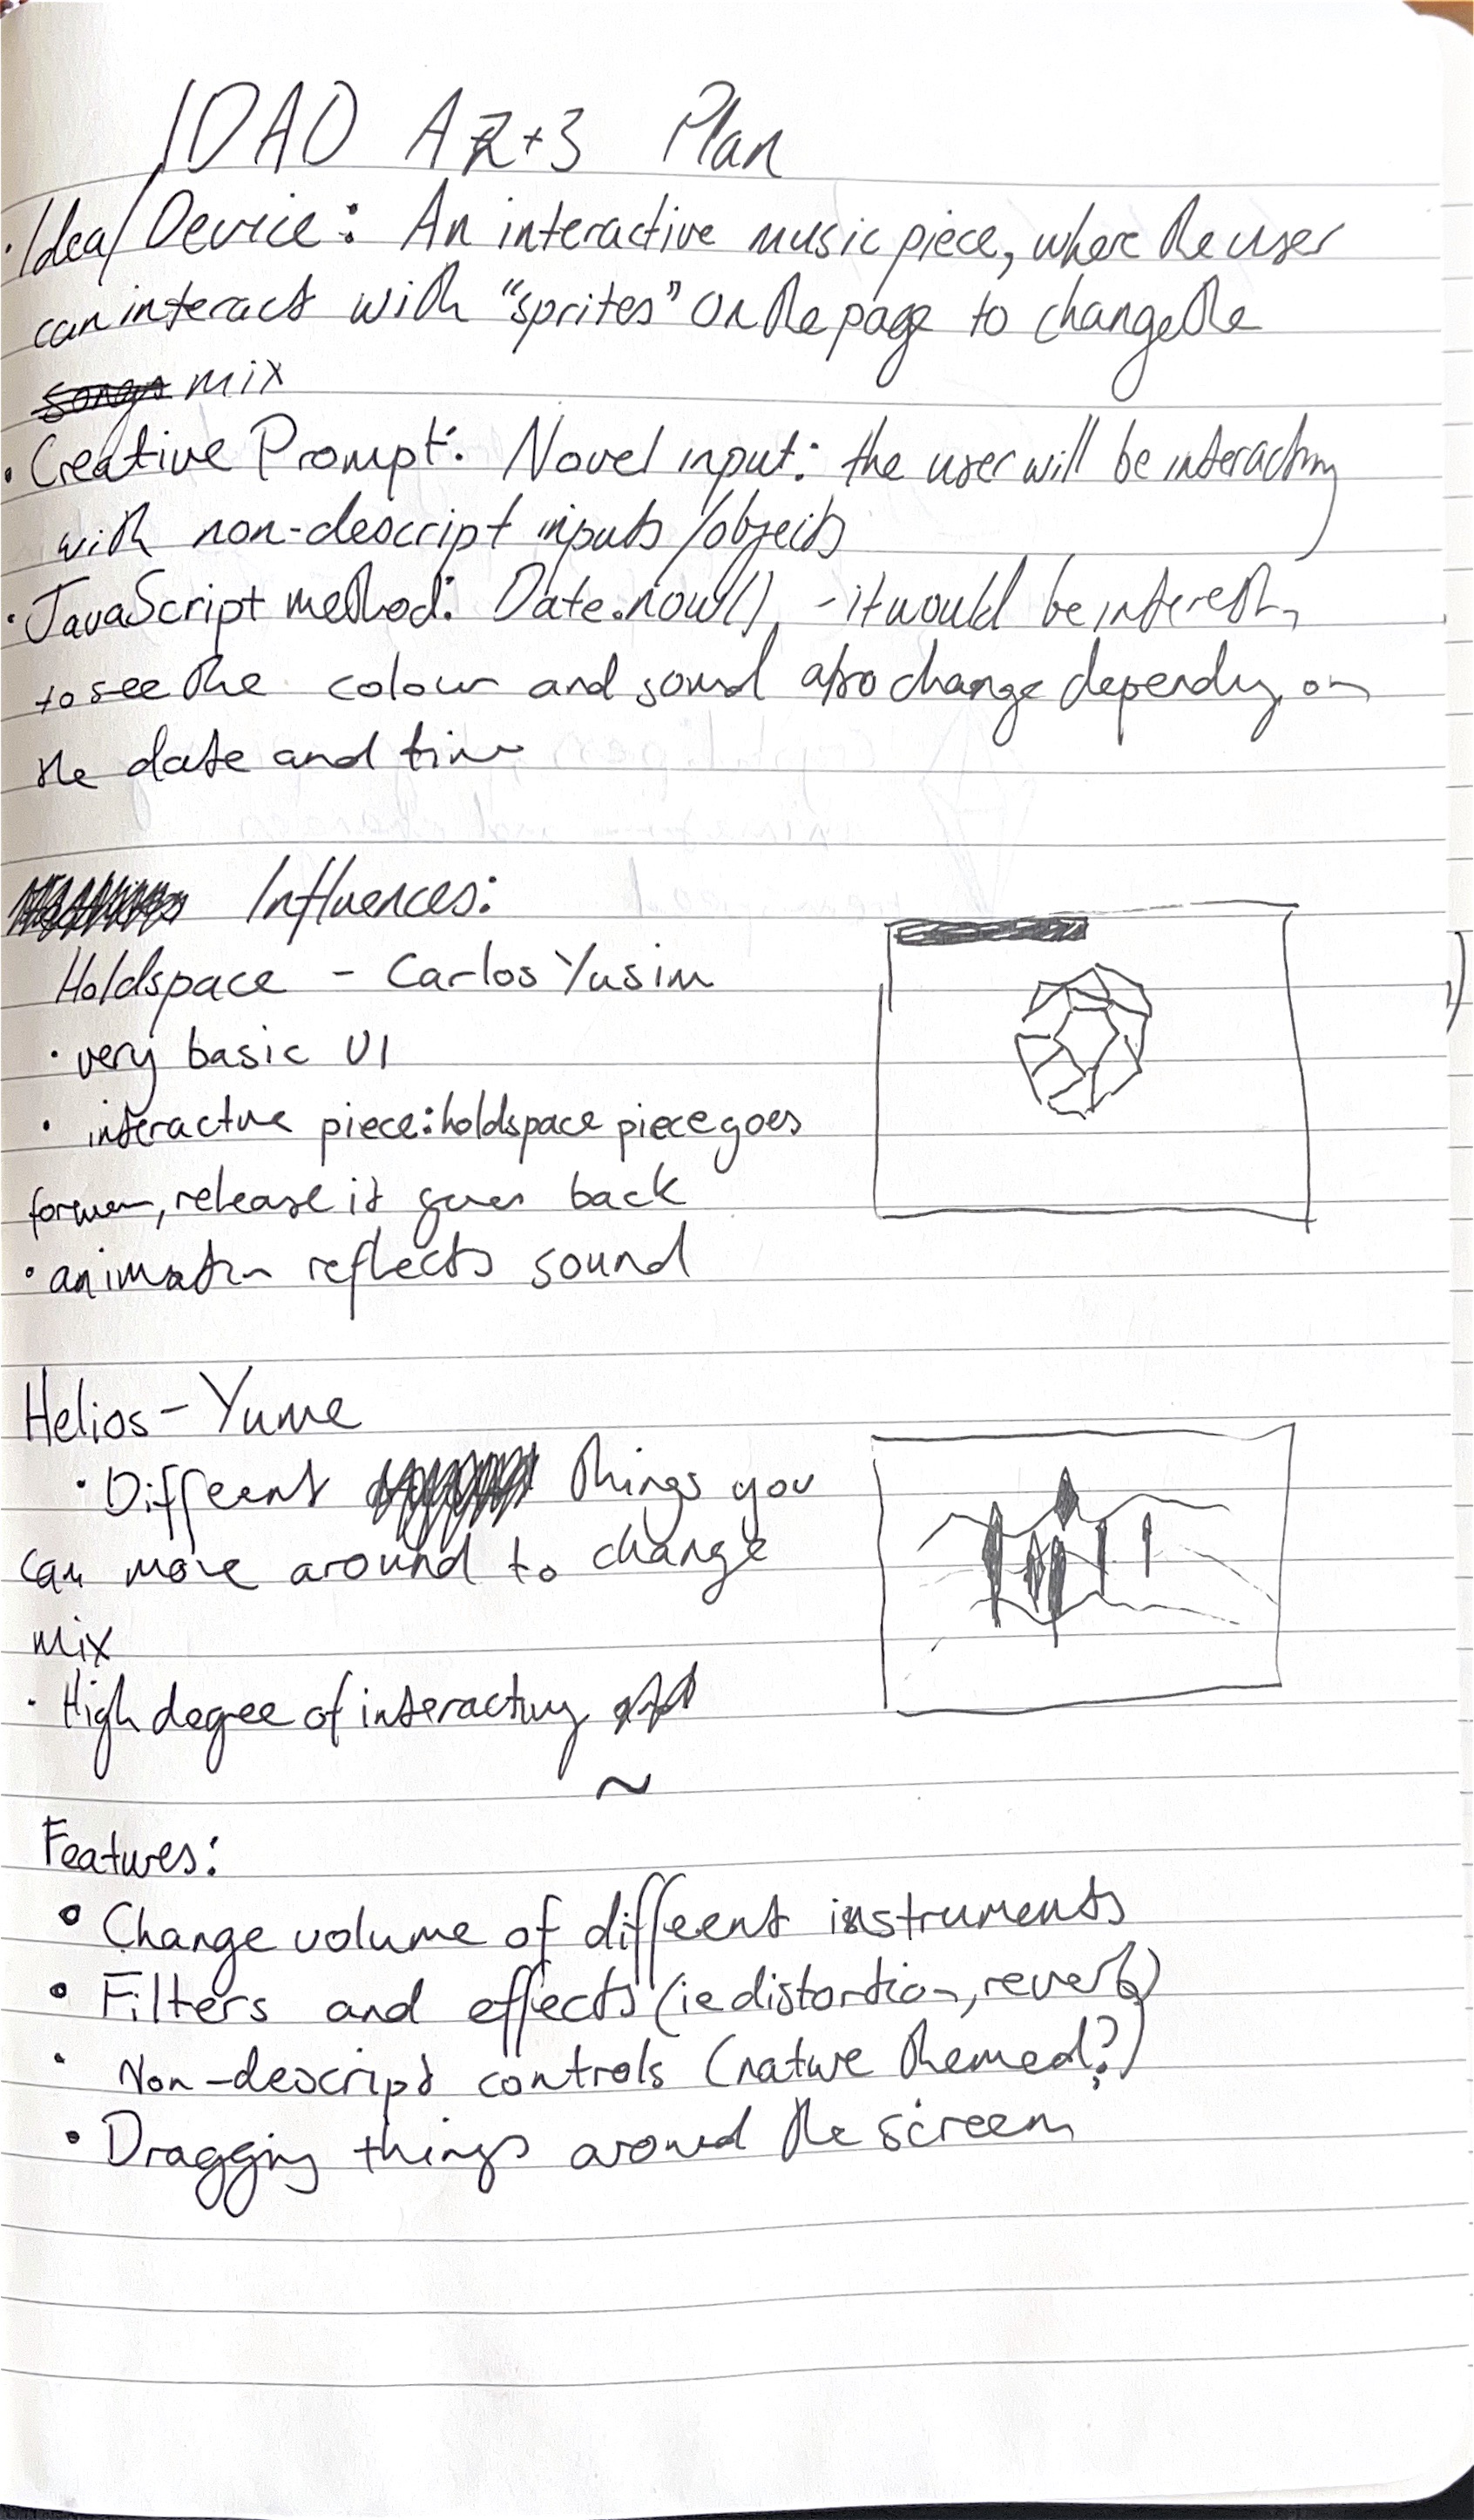 IDAO A2+3 Plan
· Idea/Device: An interactive music piece, where the user
can interact with "sprites" on the page to change the
songs mix
· Creative Prompt: Novel input: the user will be interacting
with non-descript inputs/objects
· JavaScript method: Date.now() - it would be interesting
to see the colour and sound also change depending on
the date and time
Influences:
Holdspace - Carlos Yusim
· very basic UI
· interactive piece: holdspace piece goes
forward, release it goes back
· animation reflects sound
Helios - Yume
· Different things you
can move around to change
mix
· High degree of interacting
~
Features:
• Change volume of different instruments
• Filters and effects (ie distortion, reverb)
· Non-descript controls (nature themed?)
• Dragging things around the screen